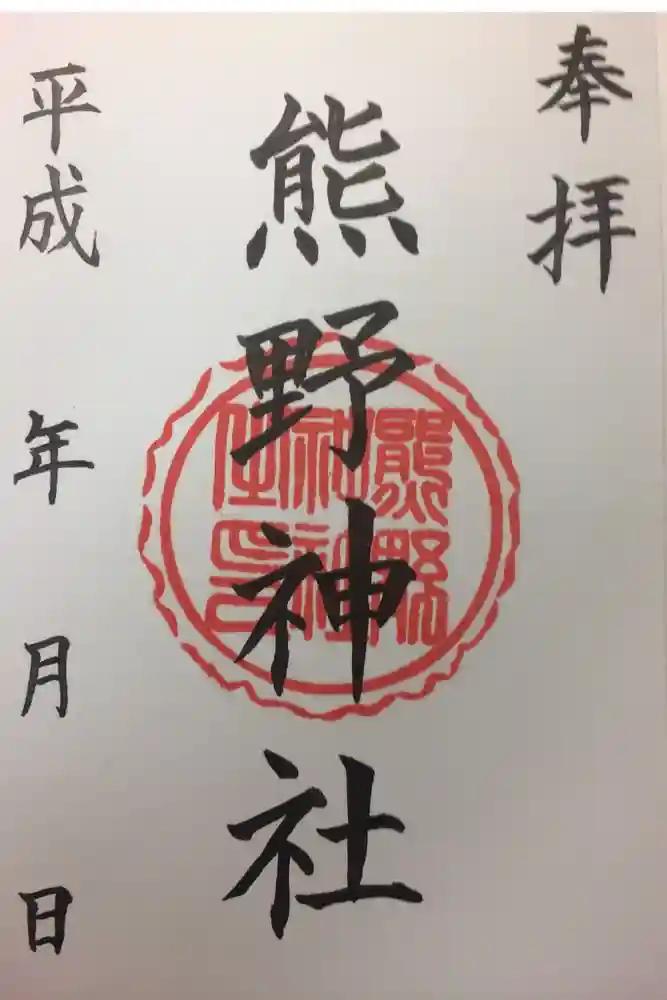 奉拝
熊野神社
平成 年 月 日
熊野
神社
社印